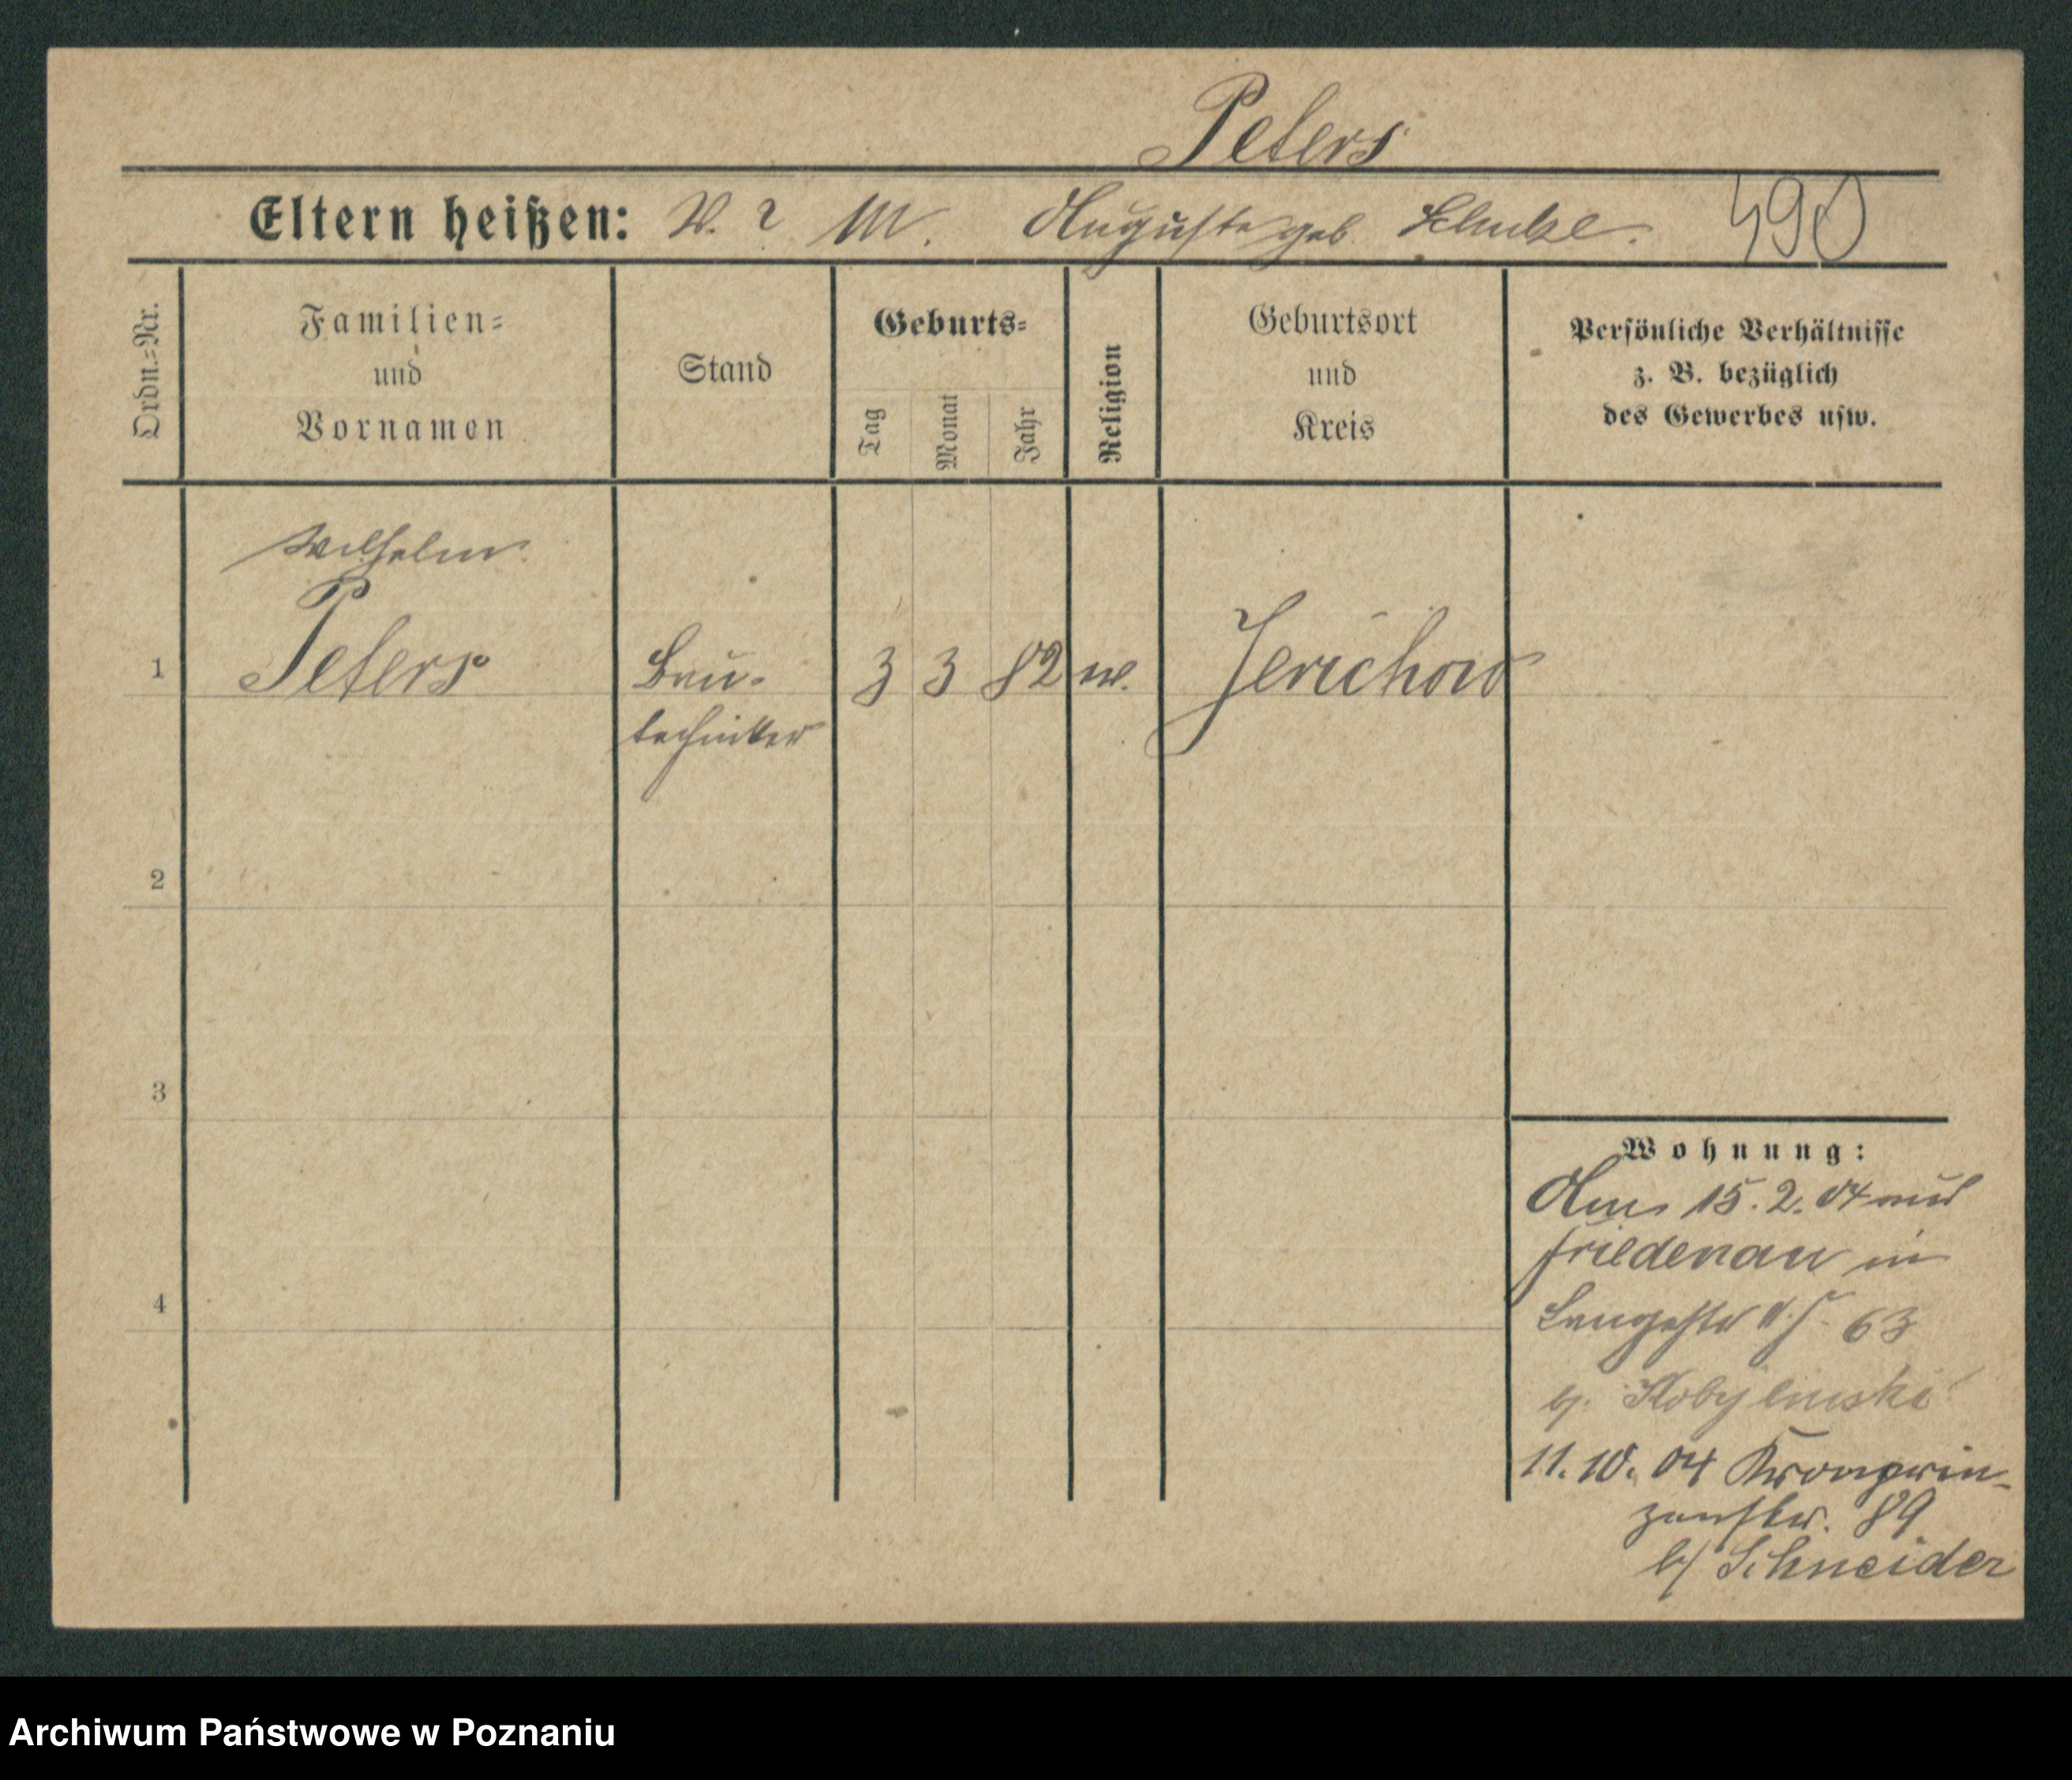 Peters
Eltern heißen: V. ? M. Auguste geb. Schulze. 490
Ordn.=Nr.
Familien=
und
Vornamen
Stand
Geburts=
Tag
Monat
Jahr
Religion
Geburtsort
und
Kreis
Persönliche Verhältnisse
z. B. bezüglich
des Gewerbes usw.
Wilhelm
1 Peters Bau- 3 3 82 ev. Jerichow
techniker
2
3
4
Wohnung:
Am 15.2.04 aus
Friedenau in
Langestr 63
b/ Kobylinski
11.10.04 Kronprin-
zenstr. 89
b/ Schneider
Archiwum Państwowe w Poznaniu